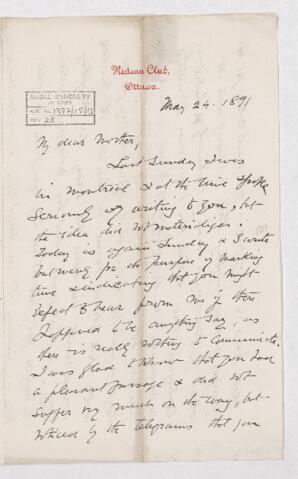 Rideau Club,
Ottawa.
McGILL UNIVERSITY
ARCHIVES
ACC. NO. 1337/15/13
REF. 28
May 24. 1891
My dear Mother,
Last Sunday I was
in Montreal & at the time spoke
seriously of writing to you, but
the idea did not materialize.
Today is again Sunday & I write
but merely for the purpose of marking
time & indicating that you might
expect to hear from me if there
happened to be anything to say, as
there is really nothing to communicate.
I was glad to know that you had
a pleasant passage & did not
suffer very much on the way, but
noticed by the telegrams that you